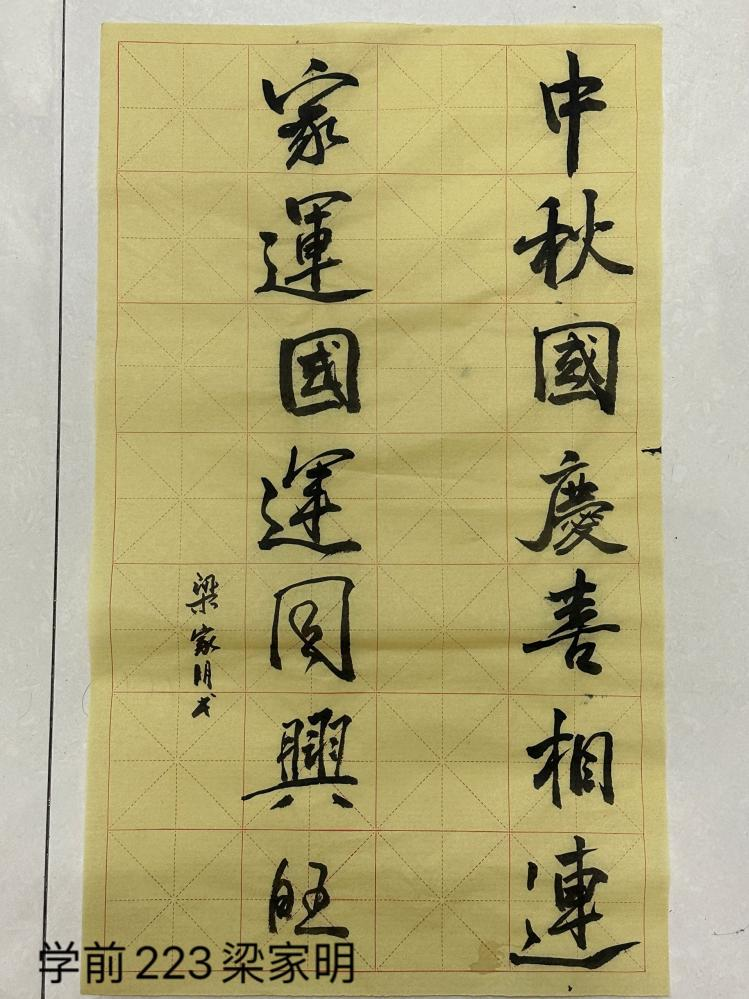 中秋國慶喜相連
家運國運同興旺
梁家明书
学前223梁家明